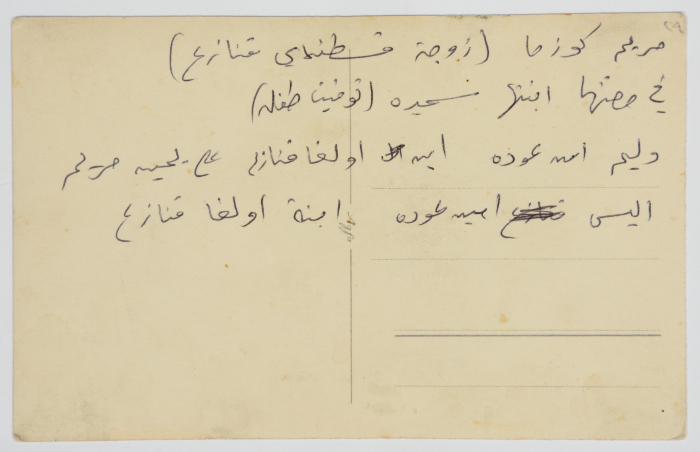 مريم كوزما (زوجة قسطندي قنازع)
في حضنها ابنتها سعيده (توفيت طفله)
وليم امين عوده ابن اولغا قنازع على يمين مريم
اليس امين عوده ابنة اولغا قنازع